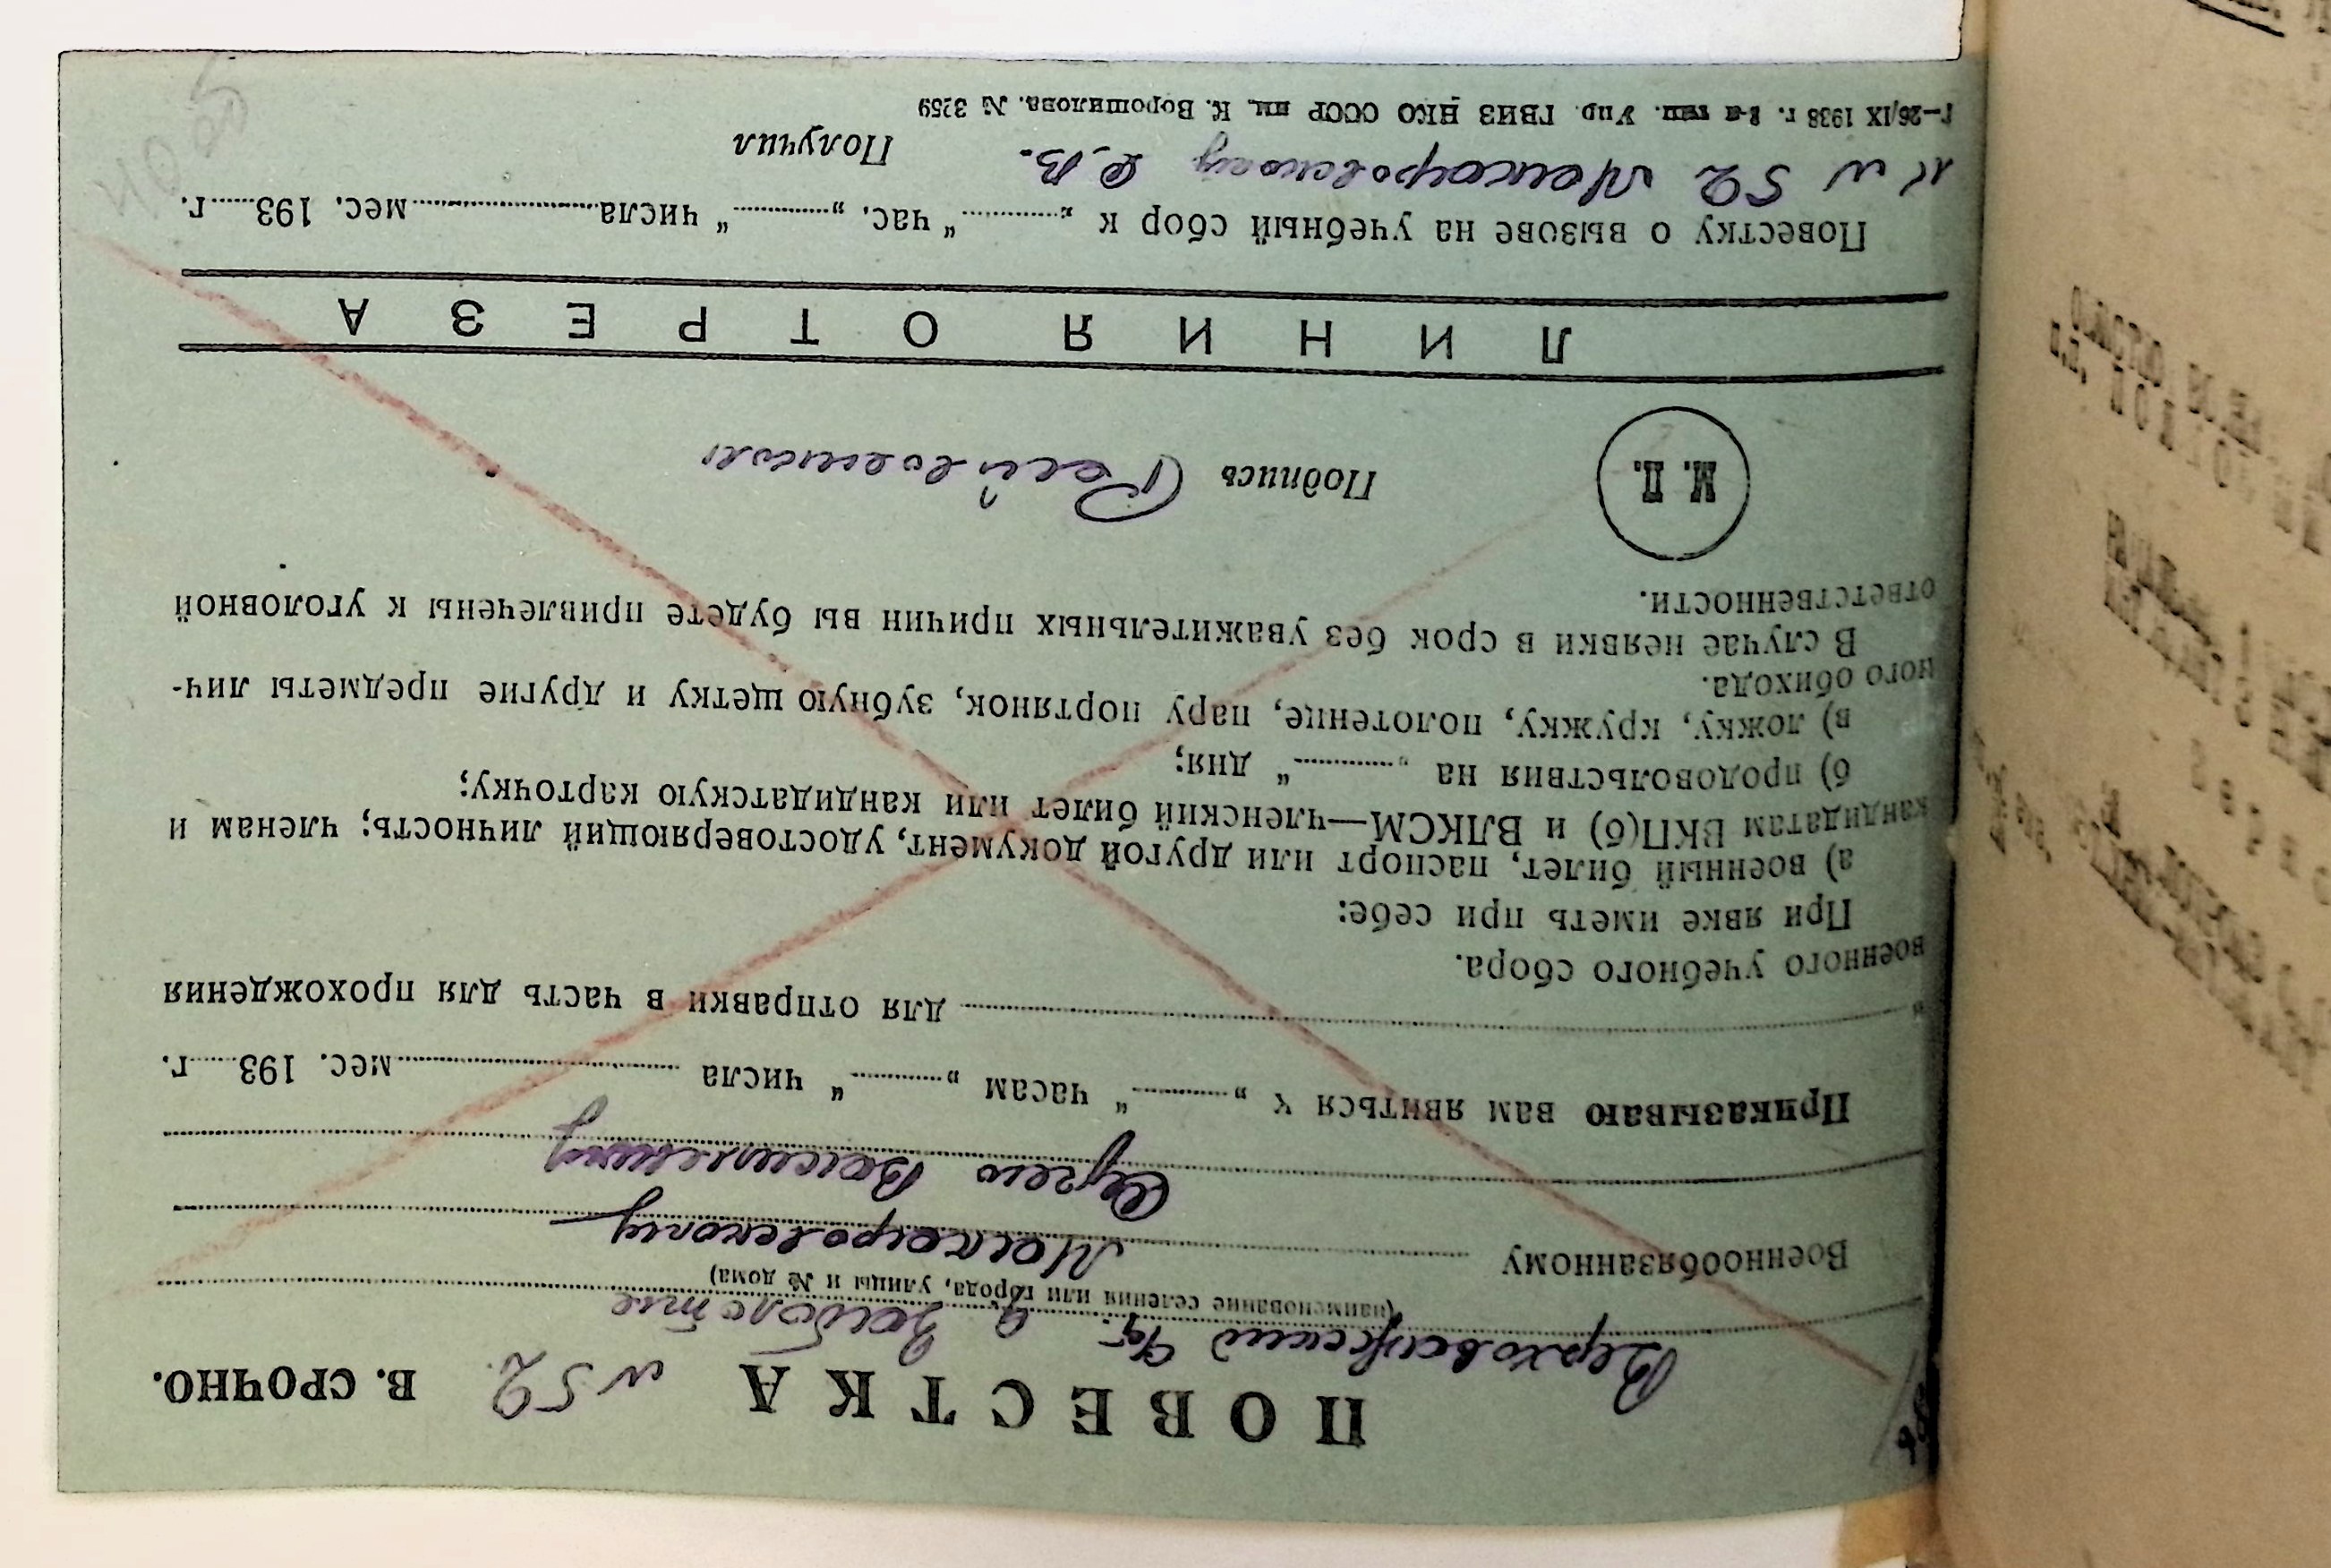 ПОВЕСТКА № 52 В. СРОЧНО.
Верховажский д. Заболотье
(наименование селения или города, улицы и № дома)
Военнообязанному Макаровскому
Сергею Васильевичу
Приказываю вам явиться к „............“ часам „............“ числа ........................мес. 193......г.
в ........................ для отправки в часть для прохождения
военного учебного сбора.
При явке иметь при себе:
а) военный билет, паспорт или другой документ, удостоверяющий личность; членам и
кандидатам ВКП(б) и ВЛКСМ—членский билет или кандидатскую карточку;
б) продовольствия на „............“ дня;
в) ложку, кружку, полотенце, пару портянок, зубную щетку и другие предметы лич-
ного обихода.
В случае неявки в срок без уважительных причин вы будете привлечены к уголовной
ответственности.
М. П. Подпись
ЛИНИЯ ОТРЕЗА
Повестку о вызове на учебный сбор к „............“ час. „............“ числа........................мес. 193......г.
К № 52 Макаровскому С.В. Получил
Г—26/IX 1938 г. 2-я тип. Упр. ГВИЗ НКО СССР им. К. Ворошилова. № 3259